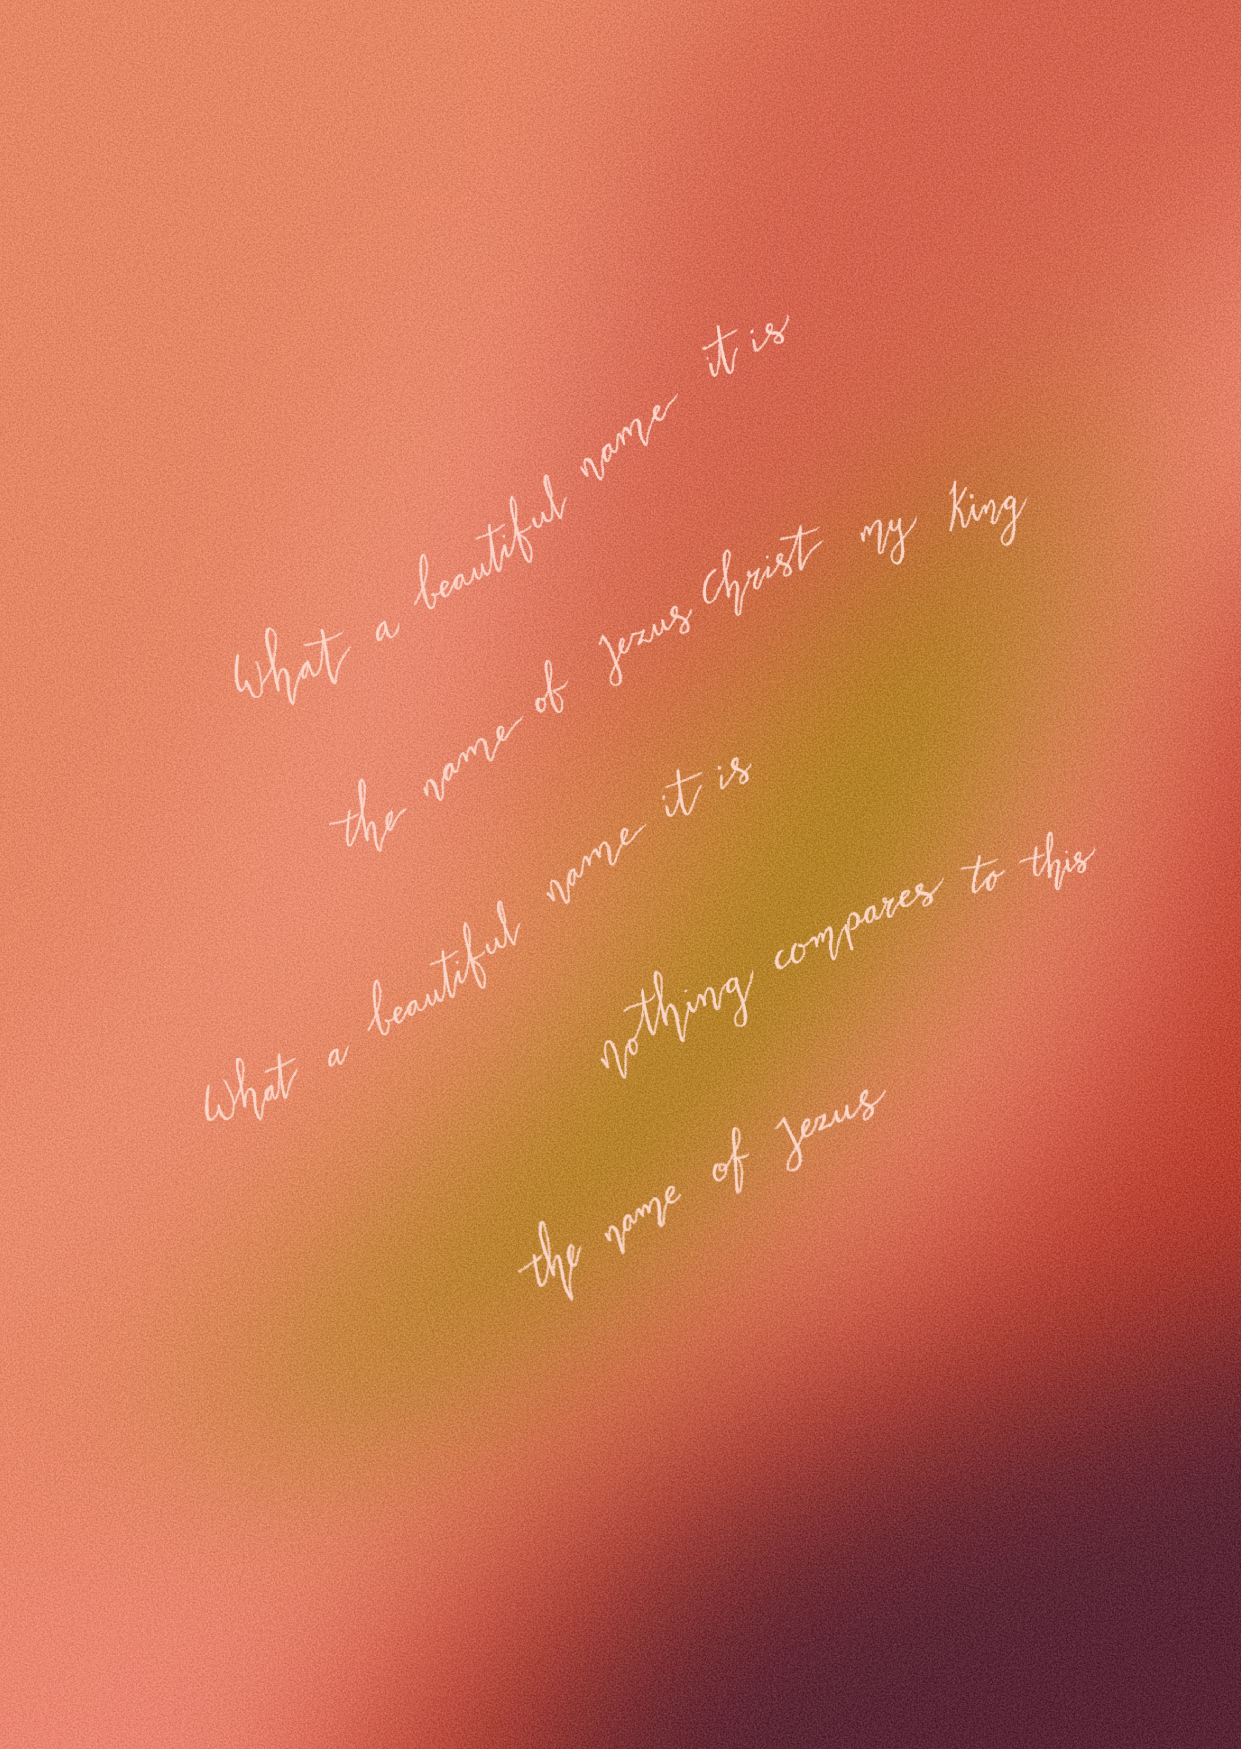 What a beautiful name it is
the name of Jezus Christ my King
What a beautiful name it is
nothing compares to this
the name of Jezus